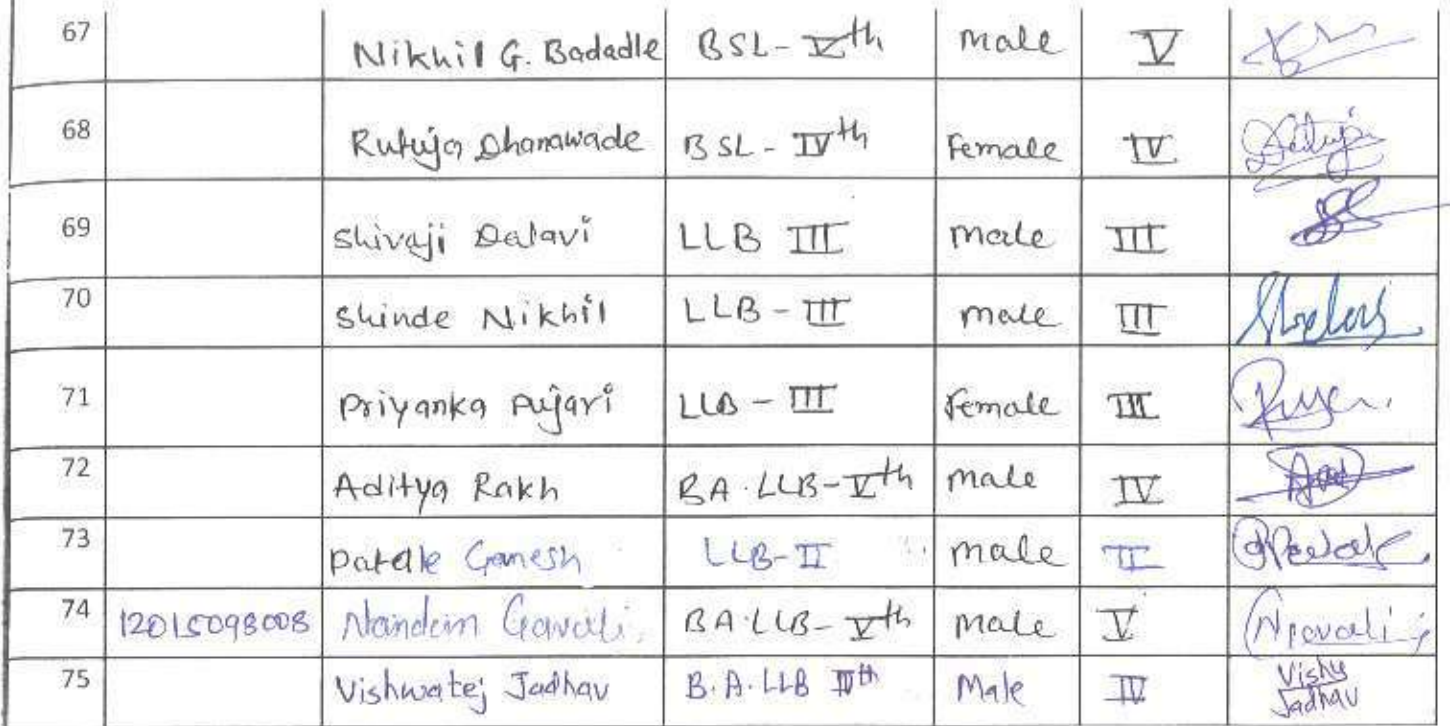 67 Nikhil G. Badadle BSL- Vth male V
68 Rutuja Dhanawade BSL- IVth Female IV
69 Shivaji Dalavi LLB III male III
70 Shinde Nikhil LLB - III male III
71 Priyanka Pujari LLB - III Female III
72 Aditya Rakh BA.LLB-Vth male IV
73 Patale Ganesh LLB-II male II
74 12015098008 Nandan Gavali. BA.LLB- Vth male V
75 Vishwatej Jadhav B.A.LLB IVth Male IV Vishy
Jadhav